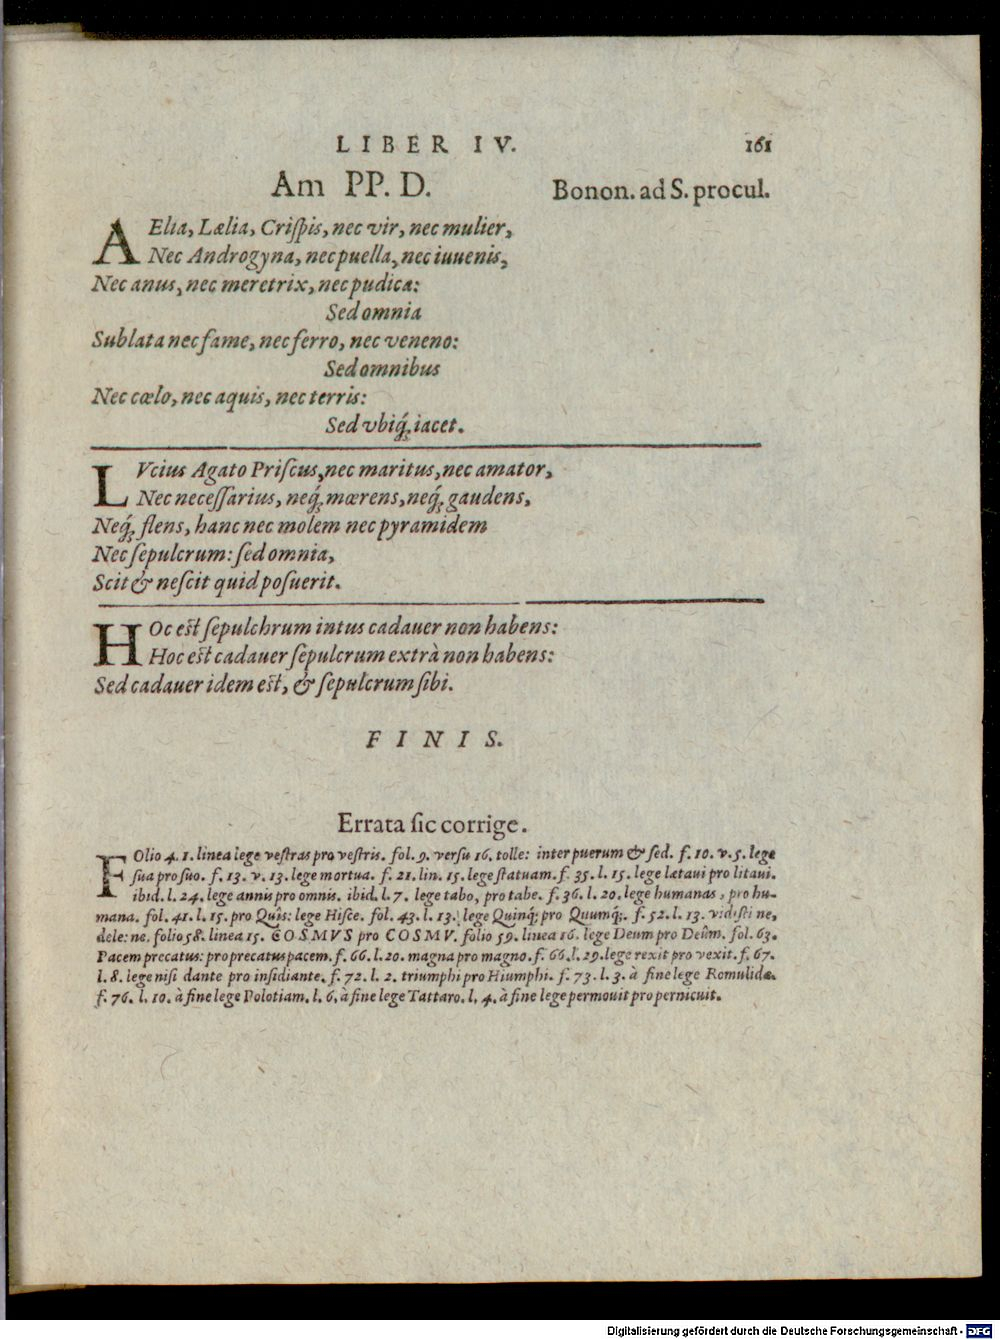 LIBER IV. 161
Am PP. D. Bonon. ad S. procul.
AElia, Lælia, Criſpis, nec vir, nec mulier,
Nec Androgyna, nec puella, nec iuuenis,
Nec anus, nec meretrix, nec pudica:
Sed omnia
Sublata nec fame, nec ferro, nec veneno:
Sed omnibus
Nec cœlo, nec aquis, nec terris:
Sed vbiq́; iacet.
LVcius Agato Priſcus, nec maritus, nec amator,
Nec neceſſarius, neq́; mœrens, neq́; gaudens,
Neq́; flens, hanc nec molem nec pyramidem
Nec ſepulcrum: ſed omnia,
Scit & neſcit quid poſuerit.
HOc eſt ſepulchrum intus cadauer non habens:
Hoc eſt cadauer ſepulcrum extrà non habens:
Sed cadauer idem eſt, & ſepulcrum ſibi.
FINIS.
Errata ſic corrige.
FOlio 4. 1. linea lege veſtras pro veſtris. fol. 9. verſu 16. tolle: inter puerum & ſed. f. 10. v. 5. lege
ſua pro ſuo. f. 13. v. 13. lege mortua. f. 21. lin. 15. lege ſtatuam. f. 35. l. 15. lege lætaui pro litaui.
ibid. l. 24. lege annis pro omnis. ibid. l. 7. lege tabo, pro tabe. f. 36. l. 20. lege humanas, pro hu-
mana. fol. 41. l. 15. pro Quis: lege Hiſce. fol. 43. l. 13. lege Quinq́; pro Quumq́;. f. 52. l. 13. vidiſti ne,
dele: ne. folio 58. linea 15. COSMVS pro COSMV. folio 59. linea 16. lege Deum pro Deûm. fol. 63.
Pacem precatus: pro precatus pacem. f. 66. l. 20. magna pro magno. f. 66. l. 29. lege rexit pro vexit. f. 67.
l. 8. lege niſi dante pro inſidiante. f. 72. l. 2. triumphi pro Hiumphi. f. 73. l. 3. à fine lege Romulidæ.
f. 76. l. 10. à fine lege Polotiam. l. 6. à fine lege Tattaro. l. 4. à fine lege permouit pro pernicuit.
Digitalisierung gefördert durch die Deutsche Forschungsgemeinschaft - DFG